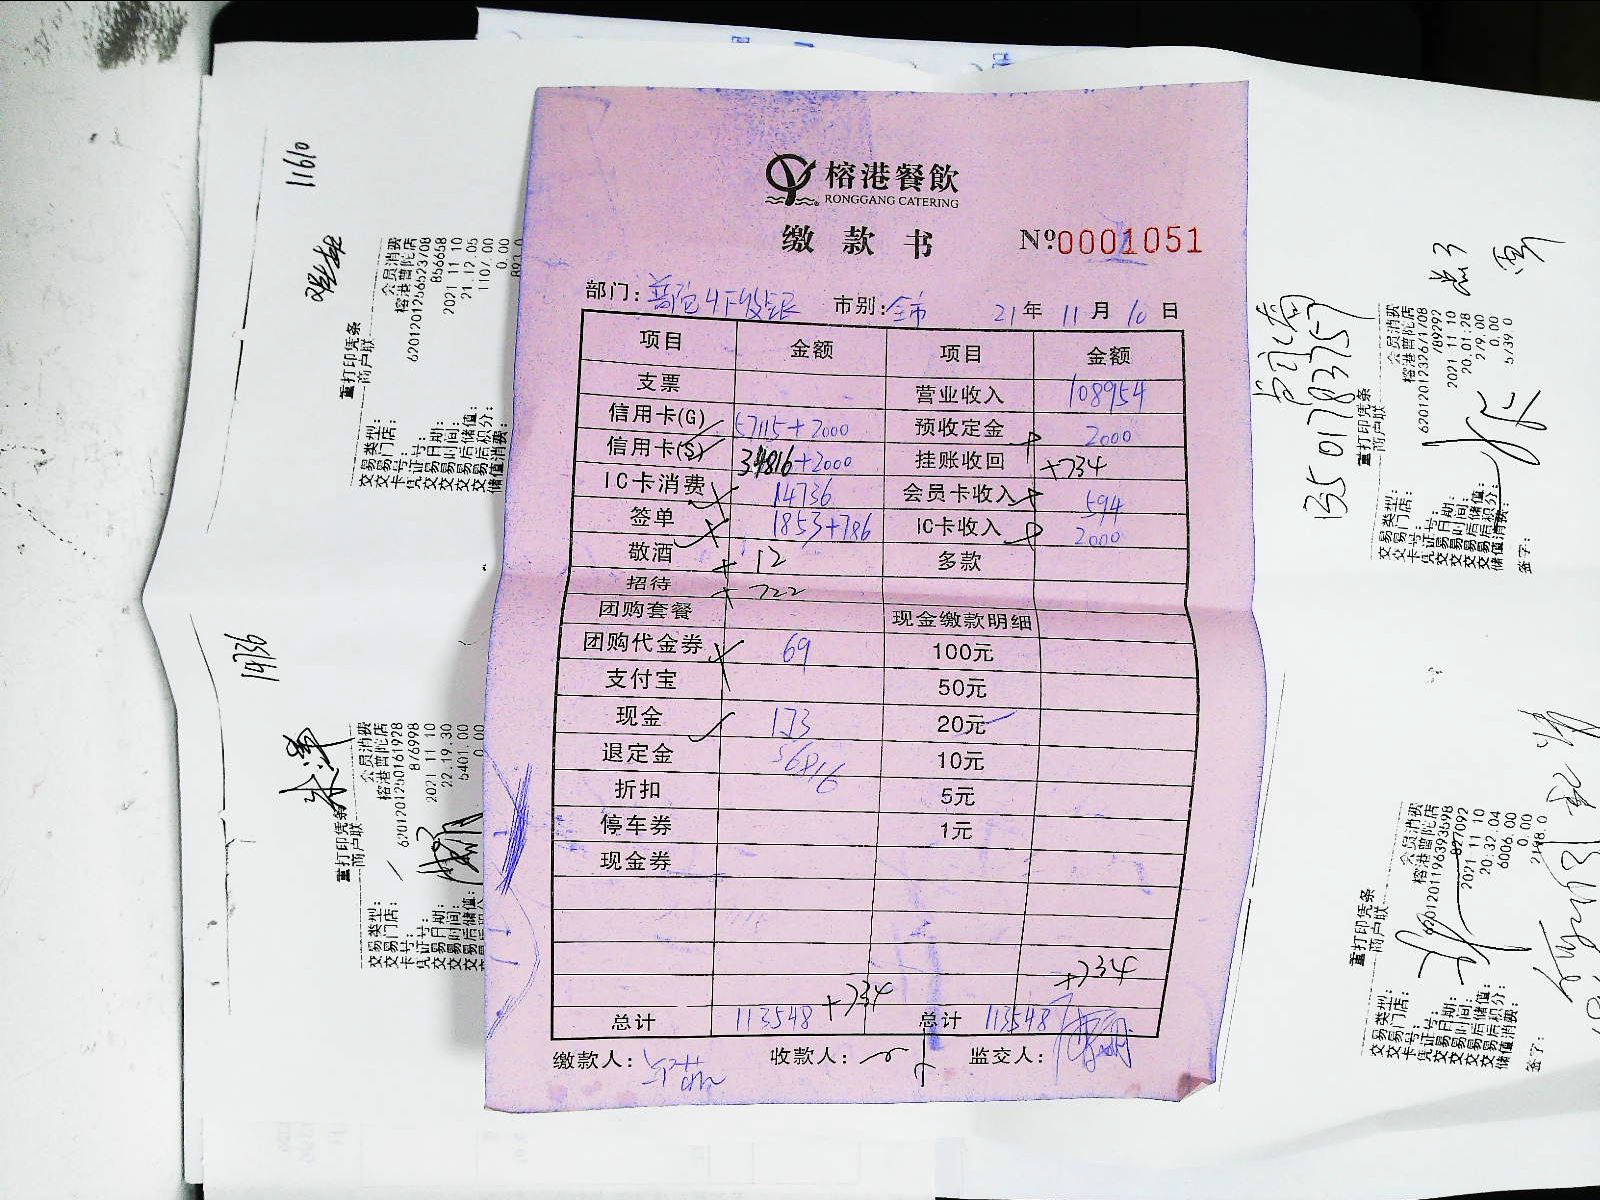 榕港餐飲
RONGGANG CATERING
缴款书 Nº0001051
部门: 市别:全市 21年 11月 10日
项目 金额 项目 金额
支票 营业收入 108954
信用卡(G) 57115+2000 预收定金 2000
信用卡(S) 34816+2000 挂账收回 +734
IC卡消费 14736 会员卡收入 594
签单 1853+786 IC卡收入 2000
敬酒 12 多款
招待 722
团购套餐 现金缴款明细
团购代金券 69 100元
支付宝 50元
现金 173 20元
退定金 56816 10元
折扣 5元
停车券 1元
现金券
+734 +734
总计 113548 总计 113548
缴款人: 收款人: 监交人:
11610
重打印凭条
商户联
交易类型: 会员消费
交易门店: 榕港普陀店
卡号: 6201201256523708
凭证号: 856658
交易日期: 2021 11 10
交易时间: 21.12.05
交易后储值: 1107.00
交易后积分: 0.00
储值消费: 893.0
14736
重打印凭条
商户联
交易类型: 会员消费
交易门店: 榕港普陀店
卡号: 6201201250161928
凭证号: 876998
交易日期: 2021 11 10
交易时间: 22.19.30
交易后储值: 5401.00
交易后积分: 0.00
13501783757
重打印凭条
商户联
交易类型: 会员消费
交易门店: 榕港普陀店
卡号: 6201201232671708
凭证号: 789292
交易日期: 2021 11 10
交易时间: 20.01.28
交易后储值: 279.00
交易后积分: 0.00
储值消费: 5739.0
签字:
重打印凭条
商户联
交易类型: 会员消费
交易门店: 榕港普陀店
卡号: 6201201196393598
凭证号: 827092
交易日期: 2021 11 10
交易时间: 20.32.04
交易后储值: 6006.00
交易后积分: 0.00
储值消费: 2198.0
签字: